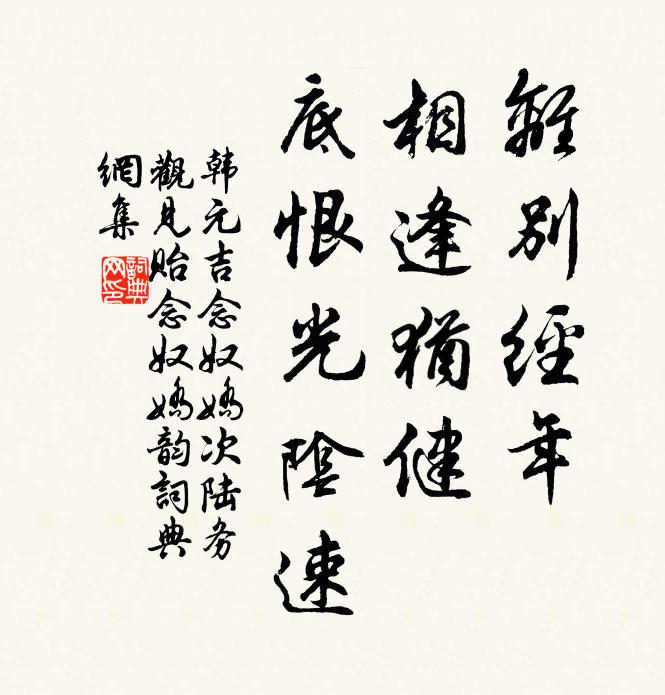 離別經年
相逢猶健
底恨光陰速
韩元吉念奴嬌次陆务
觀見貽念奴嬌韵詞典
網集
詞典
网印